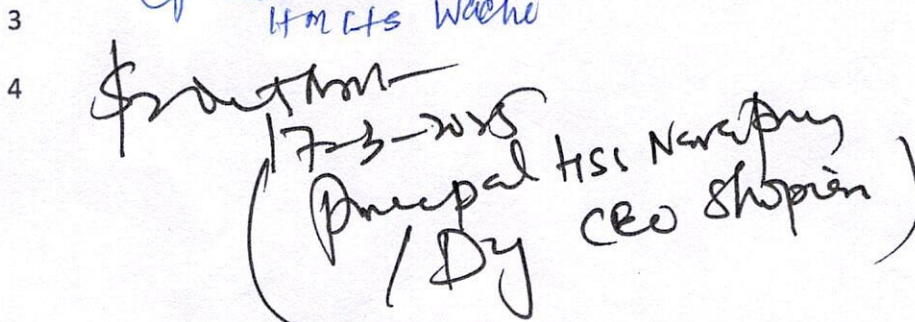 3
HM CHS Wachi
4
17-3-2025
(Principal HSS Narapur
/ Dy CEO Shopian)